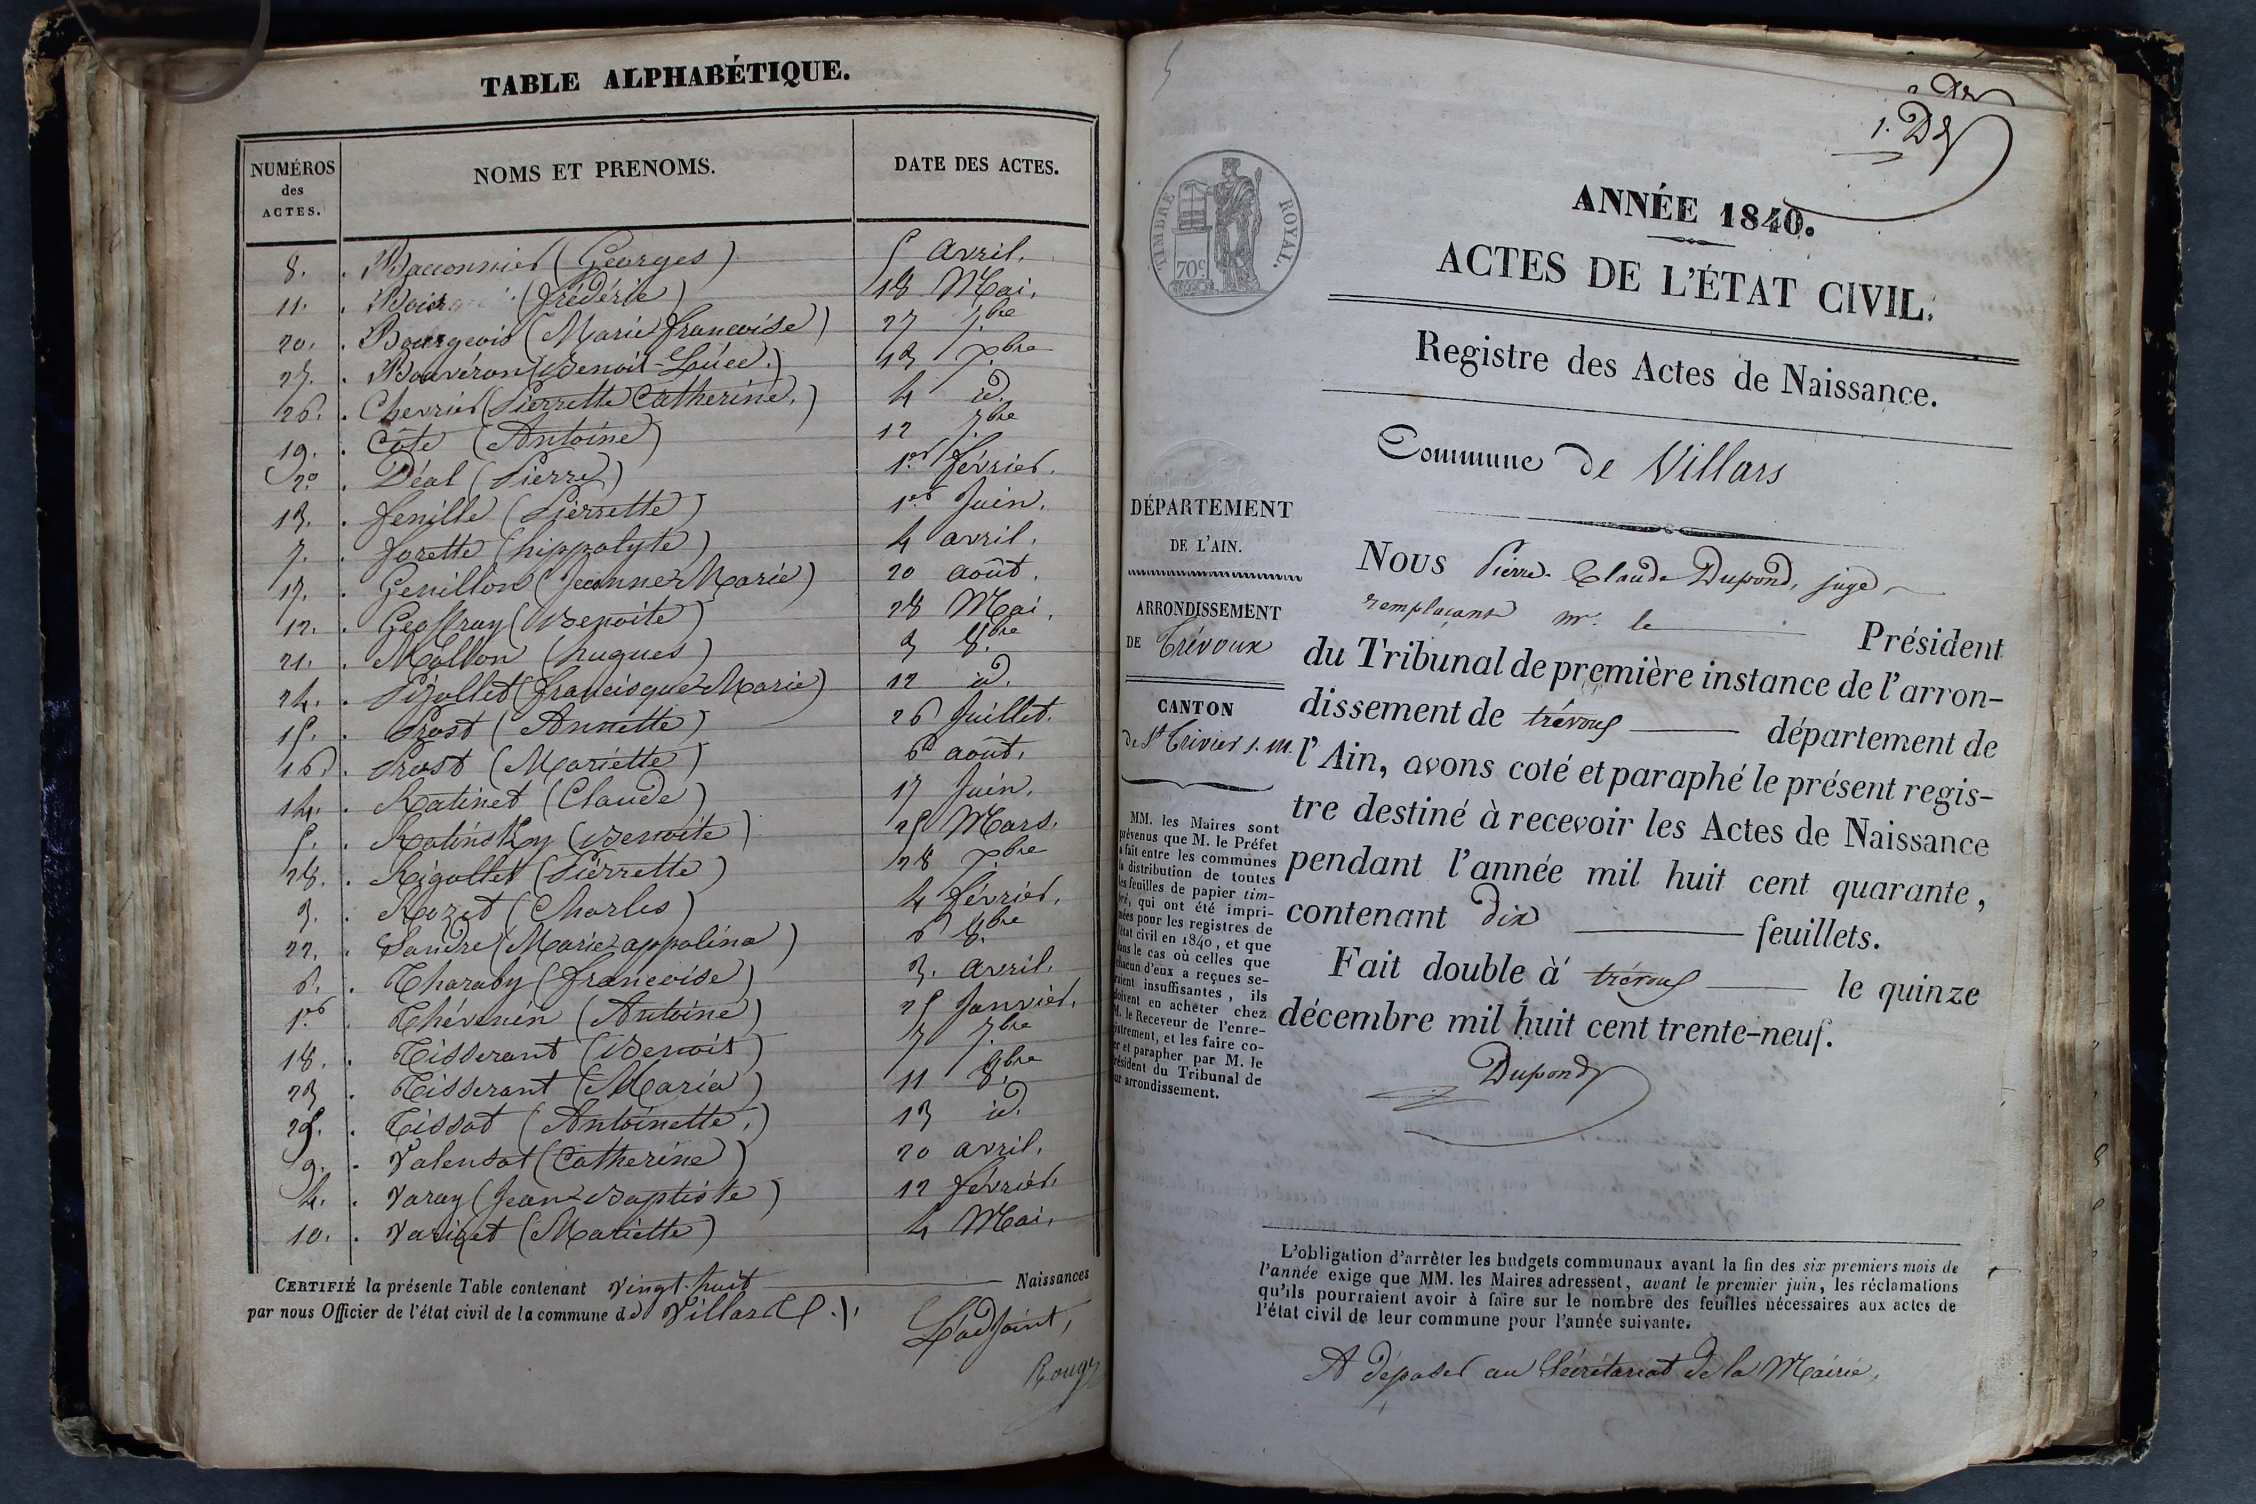 TABLE ALPHABÉTIQUE.
NUMÉROS
des
ACTES.
NOMS ET PRENOMS.
DATE DES ACTES.
8. . Bacconnier (Georges) 5 avril.
11. . (frédéric) 18 Mai.
20. . Bourgeois (Marie françoise) 27 7.bre
27. . Bouvéron (Benoit-Louée.) 13 9.bre
26. . Chevrier (Pierrette Catherine.) 4 id.
19. . Côte (Antoine) 12 7.bre
2.° . Déal (Pierre) 1.er février.
13. . fenille (Pierrette) 1.er Juin.
7. . forette (hippolyte) 4 avril.
17. . Genillon (Jeanne Marie) 20 août.
12. . Geoffray (Benoite) 28 Mai.
21. . Mollon (hugues) 3 8.bre
24. . Pijollet (francisque Marie) 12 id.
15. . Prost (Annette) 26 Juillet.
16. . Prost (Mariétte) 6 août.
14. . Ratinet (Claude) 17 Juin.
5. . Ratinsky (Benoite) 25 Mars.
28. . Rigollet (Pierrette) 28 9.bre
3. . Rozet (Charles) 4 février.
22. . Sandre (Marie appolina) 6 8.bre
6. . Tharaby (françoise) 3. avril.
1.er . Thévenin (Antoine) 25 Janvier.
18. . Tisserant (Benoit) 7 7.bre
23 . Tisserant (Maria) 11 8.bre
25. . Tissot (Antoinette.) 13 id.
9. . Valensot (Catherine) 20 avril.
4. . Varay (Jean Baptiste) 12 février.
10. . Variget (Mariette) 4 Mai.
CERTIFIÉ la présente Table contenant vingt-huit Naissances
par nous Officier de l'état civil de la commune de Villars
L'adjoint,
1. D
ANNÉE 1840.
TIMBRE ROYAL.
70c
ACTES DE L'ÉTAT CIVIL.
Registre des Actes de Naissance.
Commune de Villars
DÉPARTEMENT
DE L'AIN.
ARRONDISSEMENT
DE Trévoux
CANTON
de St Trivier s. m.
MM. les Maires sont
prévenus que M. le Préfet
a fait entre les communes
la distribution de toutes
les feuilles de papier tim-
bré, qui ont été impri-
mées pour les registres de
l'état civil en 1840, et que
dans le cas où celles que
chacun d'eux a reçues se-
raient insuffisantes, ils
doivent en acheter chez
M. le Receveur de l'enre-
gistrement, et les faire co-
ter et parapher par M. le
Président du Tribunal de
leur arrondissement.
Nous Pierre Claude Dupond, juge
remplaçant mr. le Président
du Tribunal de première instance de l'arron-
dissement de trévoux département de
l'Ain, avons coté et paraphé le présent regis-
tre destiné à recevoir les Actes de Naissance
pendant l'année mil huit cent quarante,
contenant dix feuillets.
Fait double à trévoux le quinze
décembre mil huit cent trente-neuf.
Dupond
L'obligation d'arrêter les budgets communaux avant la fin des six premiers mois de
l'année exige que MM. les Maires adressent, avant le premier juin, les réclamations
qu'ils pourraient avoir à faire sur le nombre des feuilles nécessaires aux actes de
l'état civil de leur commune pour l'année suivante.
A déposer au Sécrétariat de la Mairie.